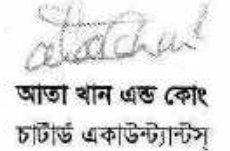 আতা খান এন্ড কোং
চার্টার্ড একাউন্ট্যান্টস্